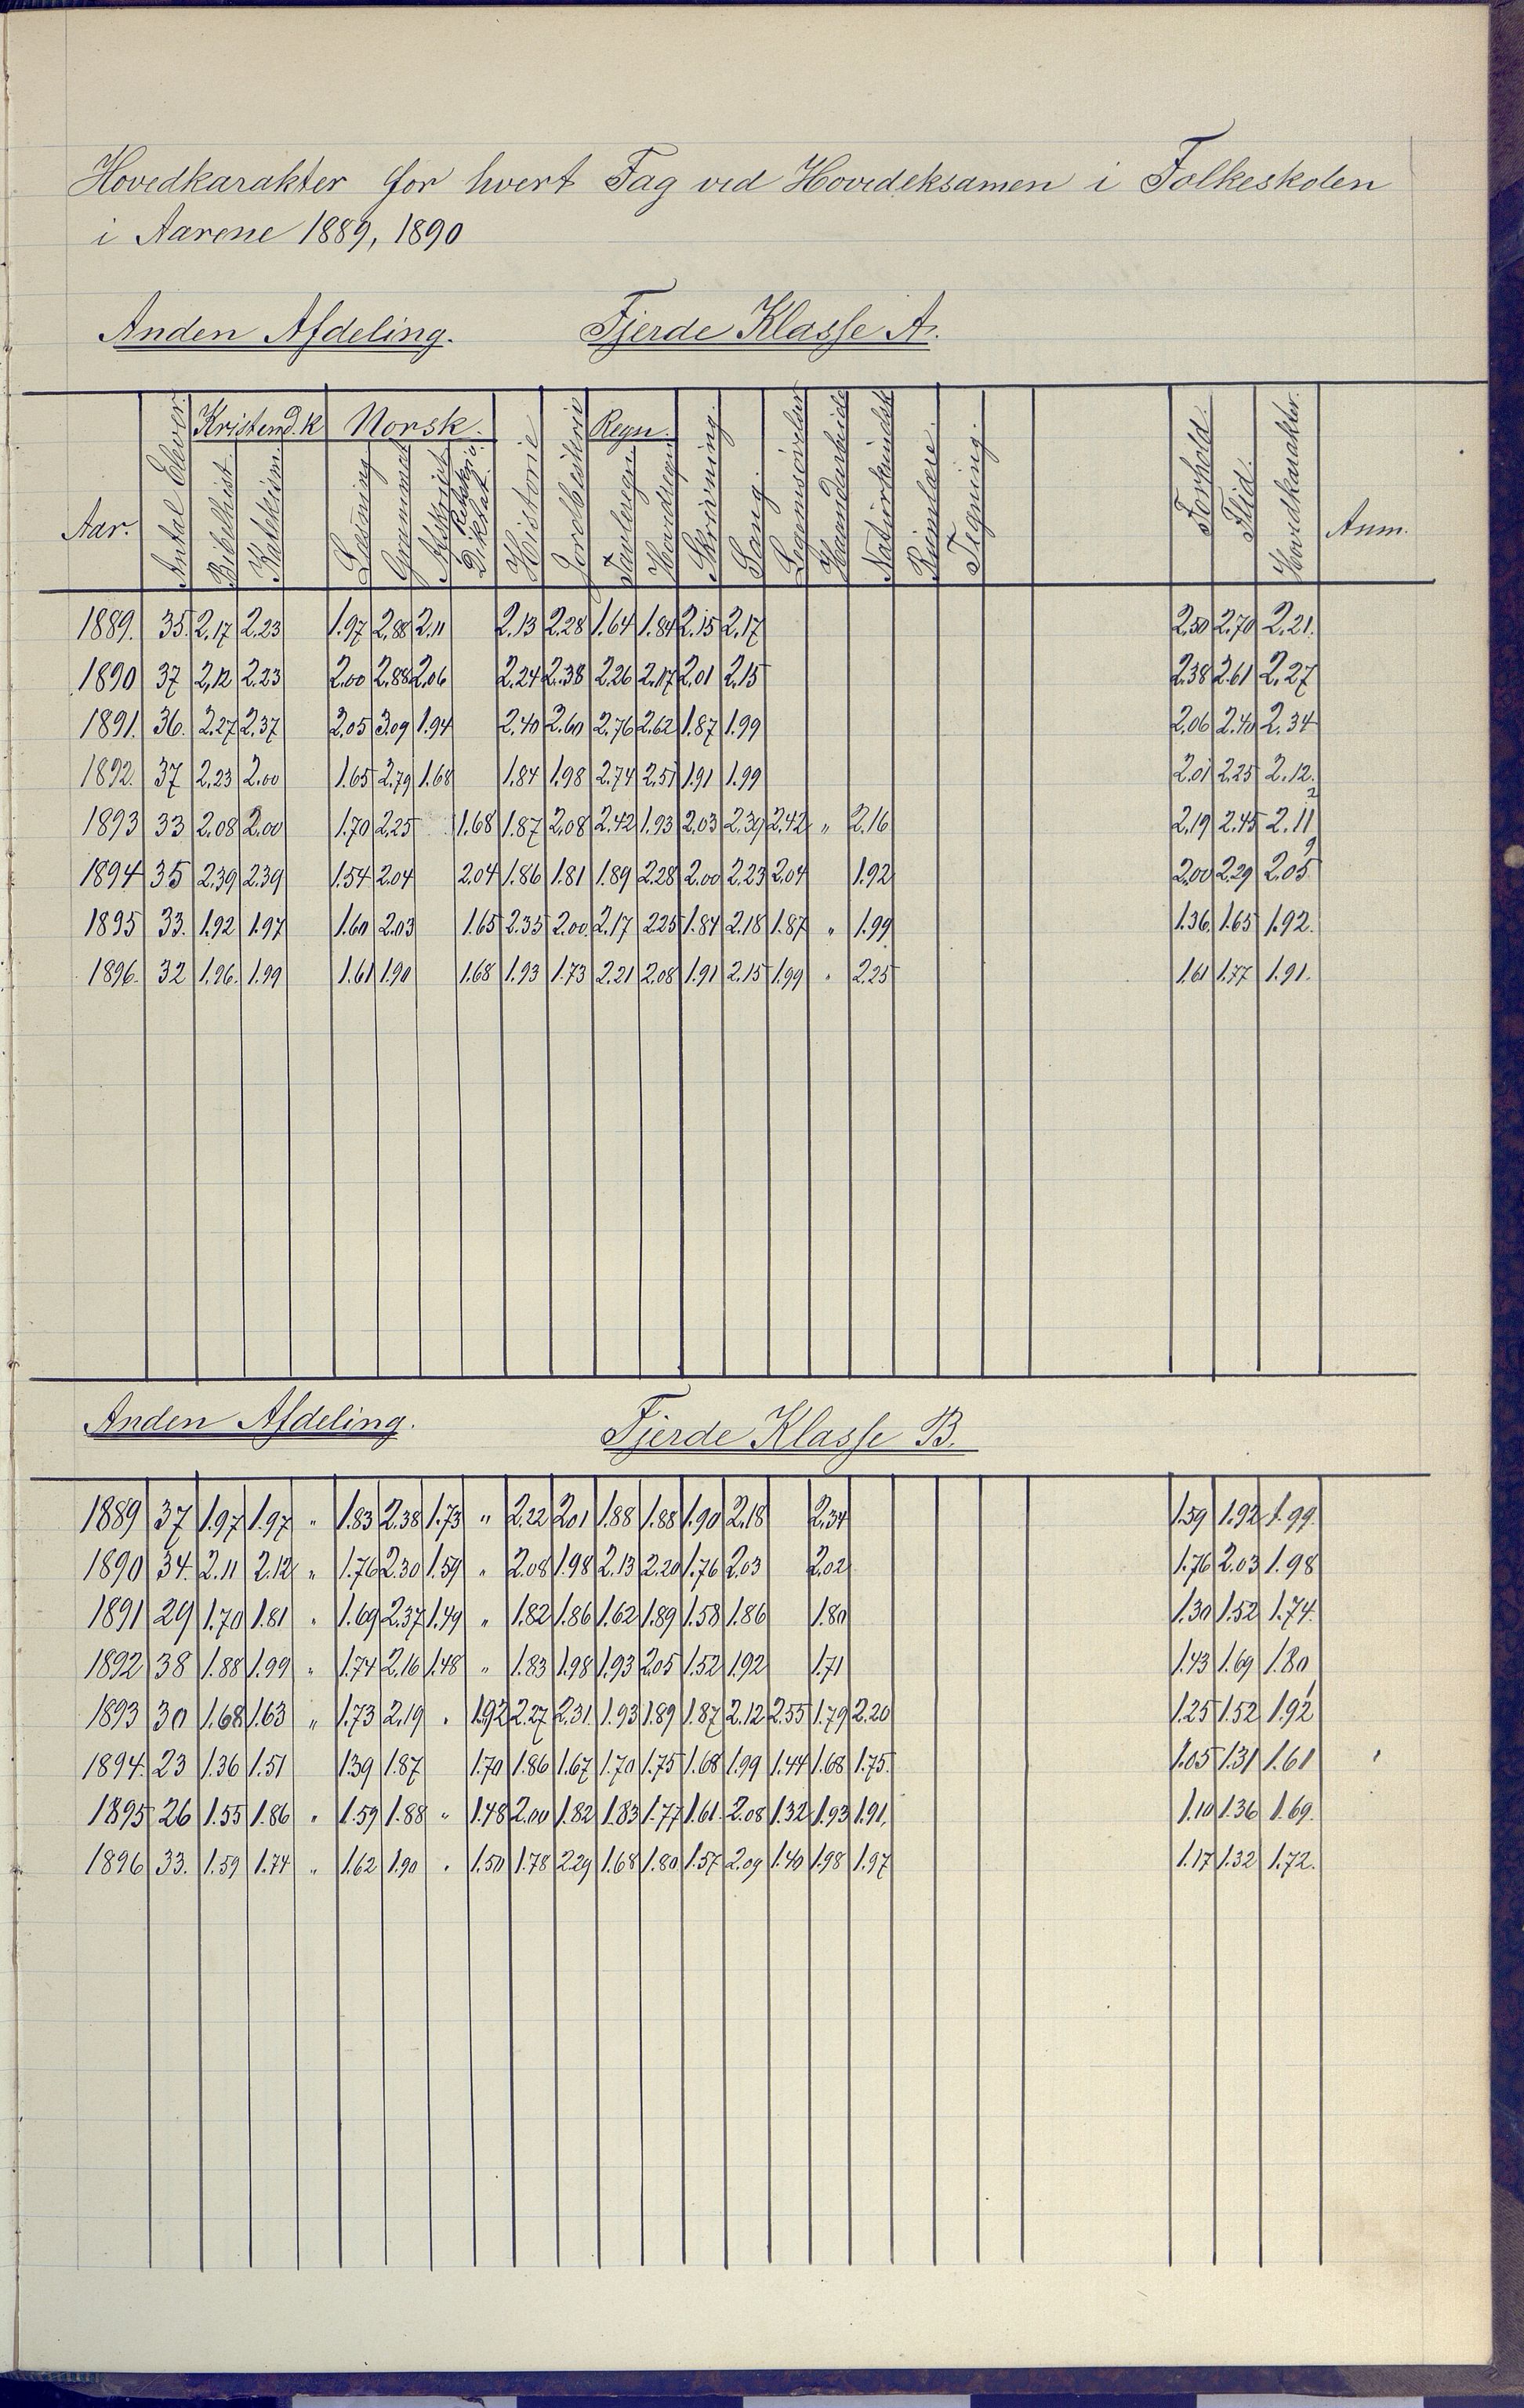 Hovedkarakter for hvert Fag ved Hovedeksamen i Folkeskolen
i Aarene 1889, 1890
Anden Afdeling. Fjerde Klasse A.
Aar. Antal Elever. Kristend.k Bibelhist. Katekism. Norsk. Læsning Grammat Afskrift Retskriv. Diktat. Historie Jordbeskrive Regn. Tavleregn Hovedregn Skrivning. Sang. Legemsøvelser Haandarbeide Naturkundsk Rumlære. Tegning. Forhold. Flid. Hovedkarakter. Anm.
1889. 35. 2.17 2.23 1.97 2.88 2.11 2.13 2.28 1.64 1.84 2.15 2.17 2.50 2.70 2.21.
1890 37 2.12 2.23 2.00 2.88 2.06 2.24 2.38 2.26 2.17 2.01 2.15 2.38 2.61 2.27
1891. 36. 2.27 2.37 2.05 3.09 1.94 2.40 2.60 2.76 2.62 1.87 1.99 2.06 2.40 2.34
1892. 37 2.23 2.00 1.65 2.79 1.68 1.84 1.98 2.74 2.51 1.91 1.99 2.01 2.25 2.12.
1893 33 2.08 2.00 1.70 2.25 1.68 1.87 2.08 2.42 1.93 2.03 2.39 2.42 " 2.16 2.19 2.45 2.11
1894 35 2.39 2.39 1.54 2.04 2.04 1.86 1.81 1.89 2.28 2.00 2.23 2.04 1.92 2.00 2.29 2.05
1895 33. 1.92 1.97 1.60 2.03 1.65 2.35 2.00 2.17 2.25 1.84 2.18 1.87 " 1.99 1.36 1.65 1.92.
1896. 32 1.96. 1.99 1.61 1.90 1.68 1.93 1.73 2.21 2.08 1.91 2.15 1.99 " 2.25 1.61 1.77 1.91.
Anden Afdeling. Fjerde Klasse B.
1889 37 1.97 1.97 " 1.83 2.38 1.73 " 2.22 2.01 1.88 1.88 1.90 2.18 2.34 1.59 1.92 1.99.
1890 34. 2.11 2.12 " 1.76 2.30 1.59 " 2.08 1.98 2.13 2.20 1.76 2.03 2.02 1.76 2.03 1.98
1891 29 1.70 1.81 " 1.69 2.37 1.49 " 1.82 1.86 1.62 1.89 1.58 1.86 1.80 1.30 1.52 1.74.
1892 38 1.88 1.99 " 1.74 2.16 1.48 " 1.83 1.98 1.93 2.05 1.52 1.92 1.71 1.43 1.69 1.80
1893 30 1.68 1.63 " 1.73 2.19 " 1.92 2.27 2.31 1.93 1.89 1.87 2.12 2.55 1.79 2.20 1.25 1.52 1.92
1894. 23 1.36 1.51 1.39 1.87 1.70 1.86 1.67 1.70 1.75 1.68 1.99 1.44 1.68 1.75. 1.05 1.31 1.61
1895 26 1.55 1.86 " 1.59 1.88 " 1.48 2.00 1.82 1.83 1.77 1.61. 2.08 1.32 1.93 1.91, 1.10 1.36 1.69.
1896 33. 1.59 1.74 " 1.62 1.90 " 1.50 1.78 2.29 1.68 1.80 1.57 2.09 1.40 1.98 1.97 1.17 1.32 1.72.